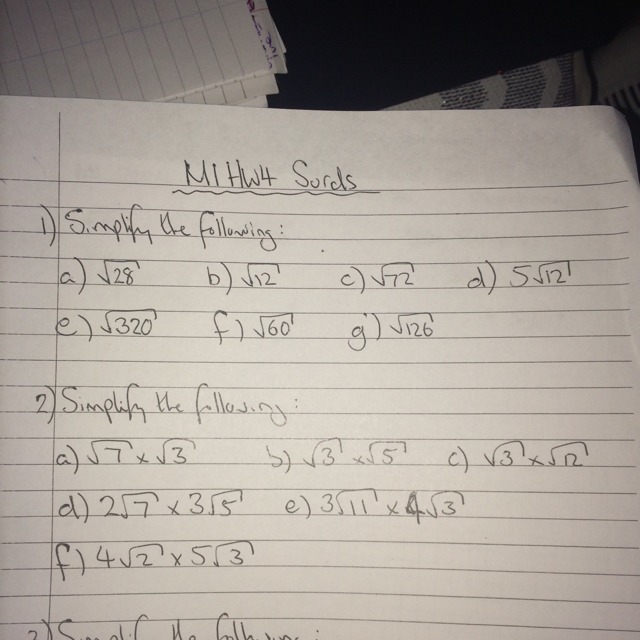 M1 HW4 Surds
1) Simplify the following:
a) √28 b) √12 c) √72 d) 5√12
e) √320 f) √60 g) √126
2) Simplify the following:
a) √7 x √3 b) √3 x √5 c) √3 x √12
d) 2√7 x 3√5 e) 3√11 x 4√3
f) 4√2 x 5√3
3) Simplify the following: